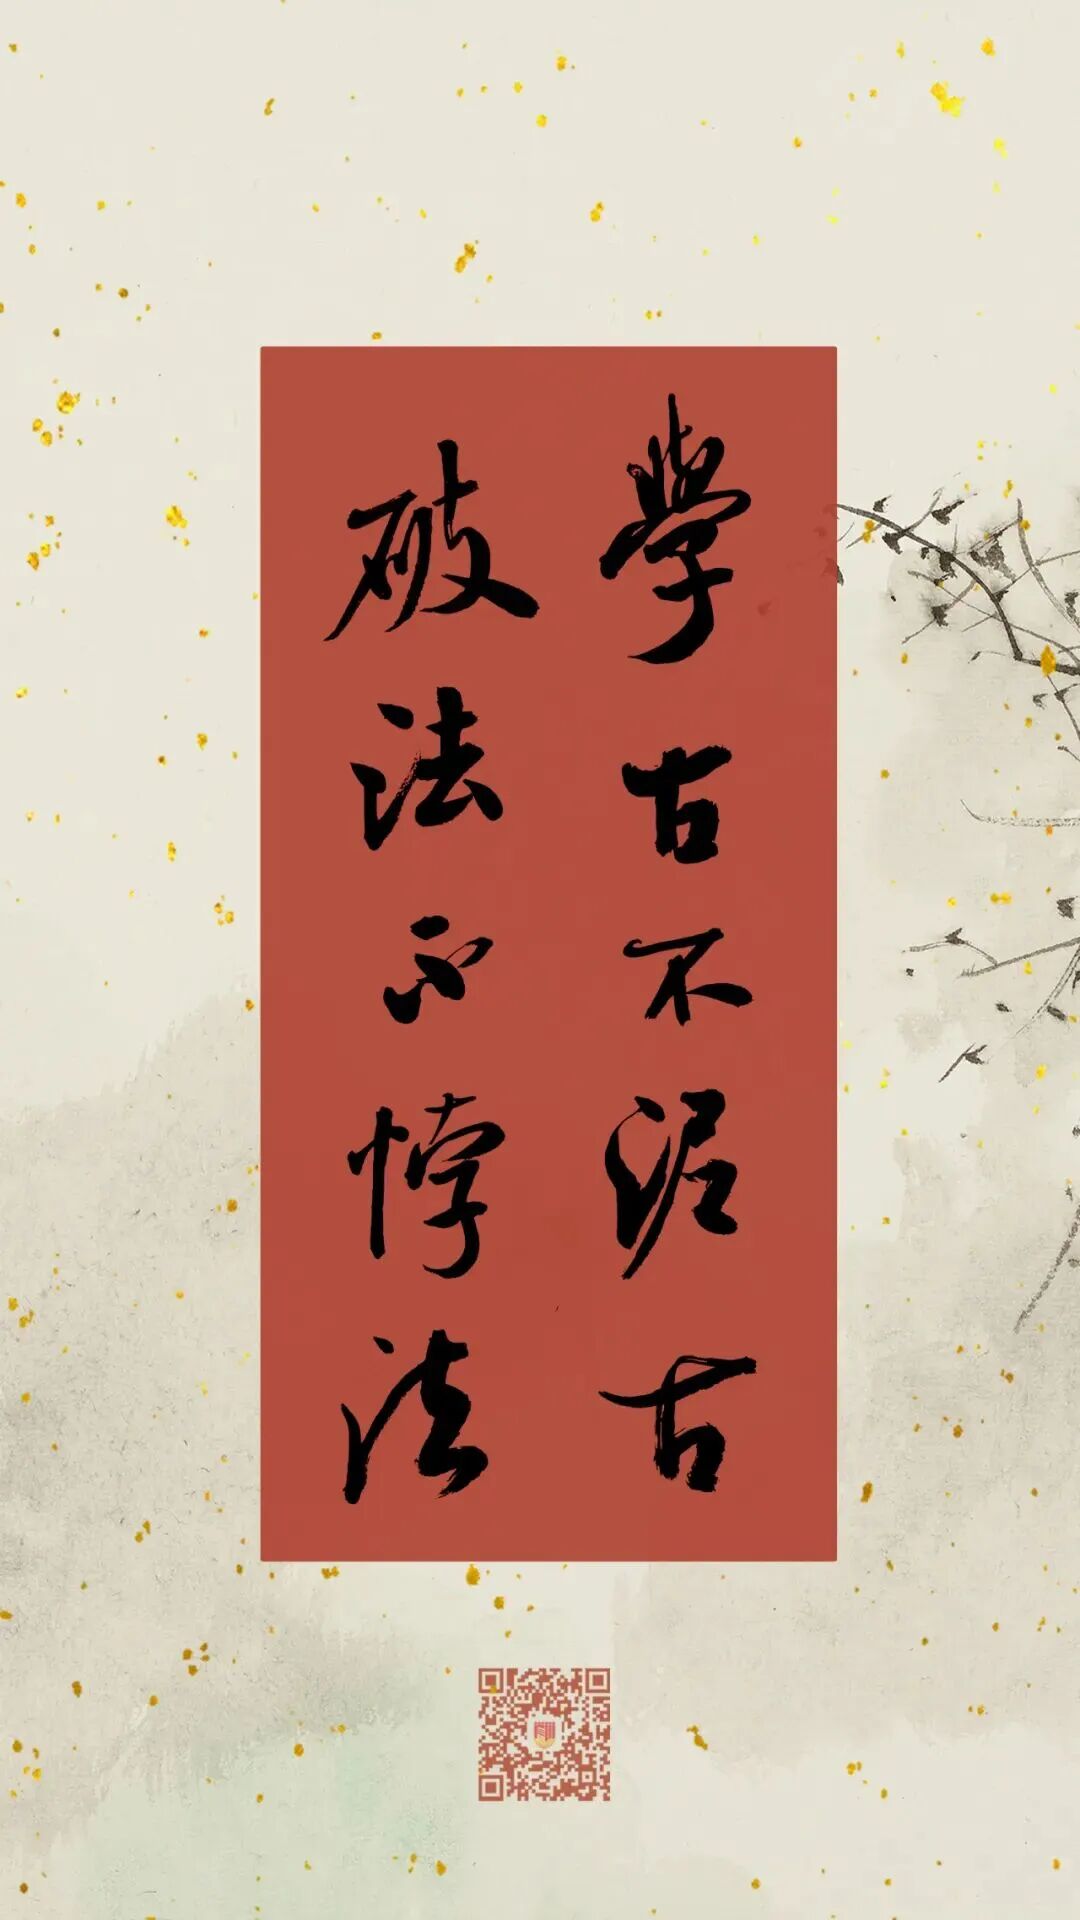 學古不泥古
破法不悖法